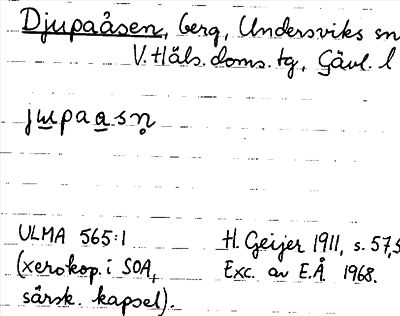 Djupaåsen, berg, Undersviks sn
V. Häls. doms. tg, Gävl. l
jupaasn̥
ULMA 565:1
(xerokop. i SOA,
särsk. kapsel).
H. Geijer 1911, s. 57,5
Exc. av E.Å 1968.